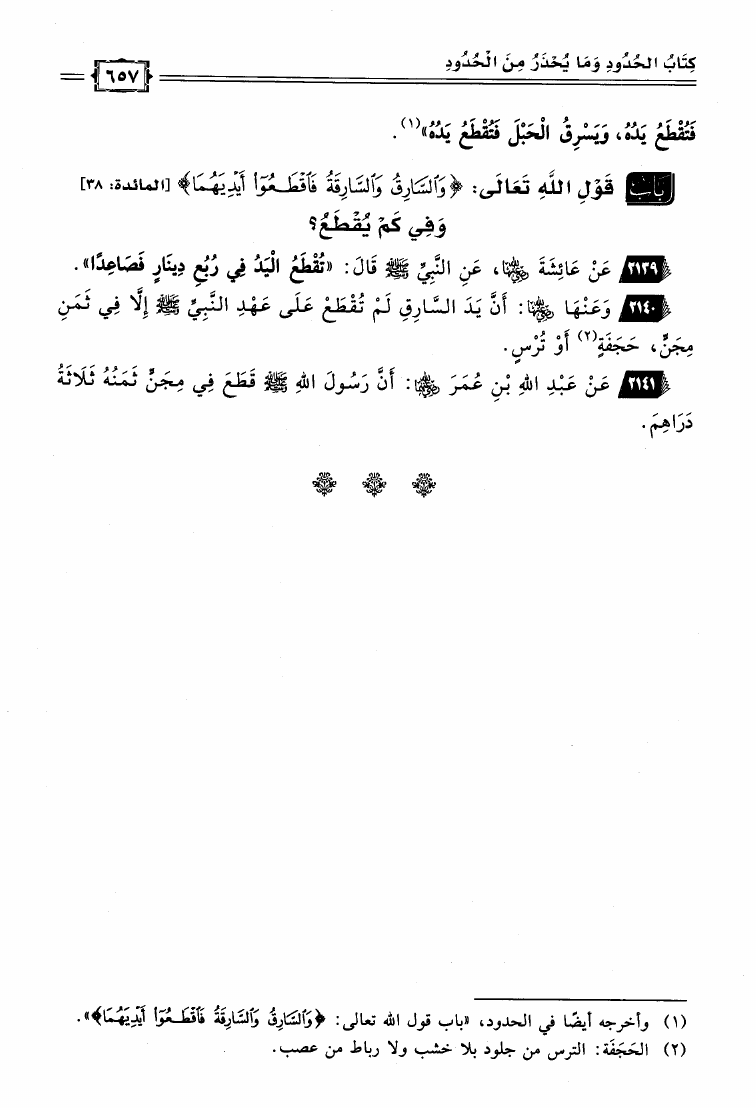 كِتَابُ الحُدُودِ وَمَا يُحْذَرُ مِنَ الْحُدُودِ
٦٥٧
فَتُقْطَعُ يَدُهُ، وَيَسْرِقُ الْحَبْلَ فَتُقْطَعُ يَدُهُ»(١).
بَابُ قَوْلِ اللَّهِ تَعَالَى: ﴿وَٱلسَّارِقُ وَٱلسَّارِقَةُ فَٱقْطَعُوٓاْ أَيْدِيَهُمَا﴾ [المائدة: ٣٨]
وَفِي كَمْ يُقْطَعُ؟
٢١٣٩ عَنْ عَائِشَةَ رضي الله عنها، عَنِ النَّبِيِّ ﷺ قَالَ: «تُقْطَعُ الْيَدُ فِي رُبُعِ دِينَارٍ فَصَاعِدًا».
٢١٤٠ وَعَنْهَا رضي الله عنها: أَنَّ يَدَ السَّارِقِ لَمْ تُقْطَعْ عَلَى عَهْدِ النَّبِيِّ ﷺ إِلَّا فِي ثَمَنِ
مِجَنٍّ، حَجَفَةٍ(٢) أَوْ تُرْسٍ.
٢١٤١ عَنْ عَبْدِ اللهِ بْنِ عُمَرَ رضي الله عنهما: أَنَّ رَسُولَ اللهِ ﷺ قَطَعَ فِي مِجَنٍّ ثَمَنُهُ ثَلَاثَةُ
دَرَاهِمَ.
(١) وأخرجه أيضًا في الحدود، «باب قول الله تعالى: ﴿وَٱلسَّارِقُ وَٱلسَّارِقَةُ فَٱقْطَعُوٓاْ أَيْدِيَهُمَا﴾».
(٢) الحَجَفَة: الترس من جلود بلا خشب ولا رباط من عصب.